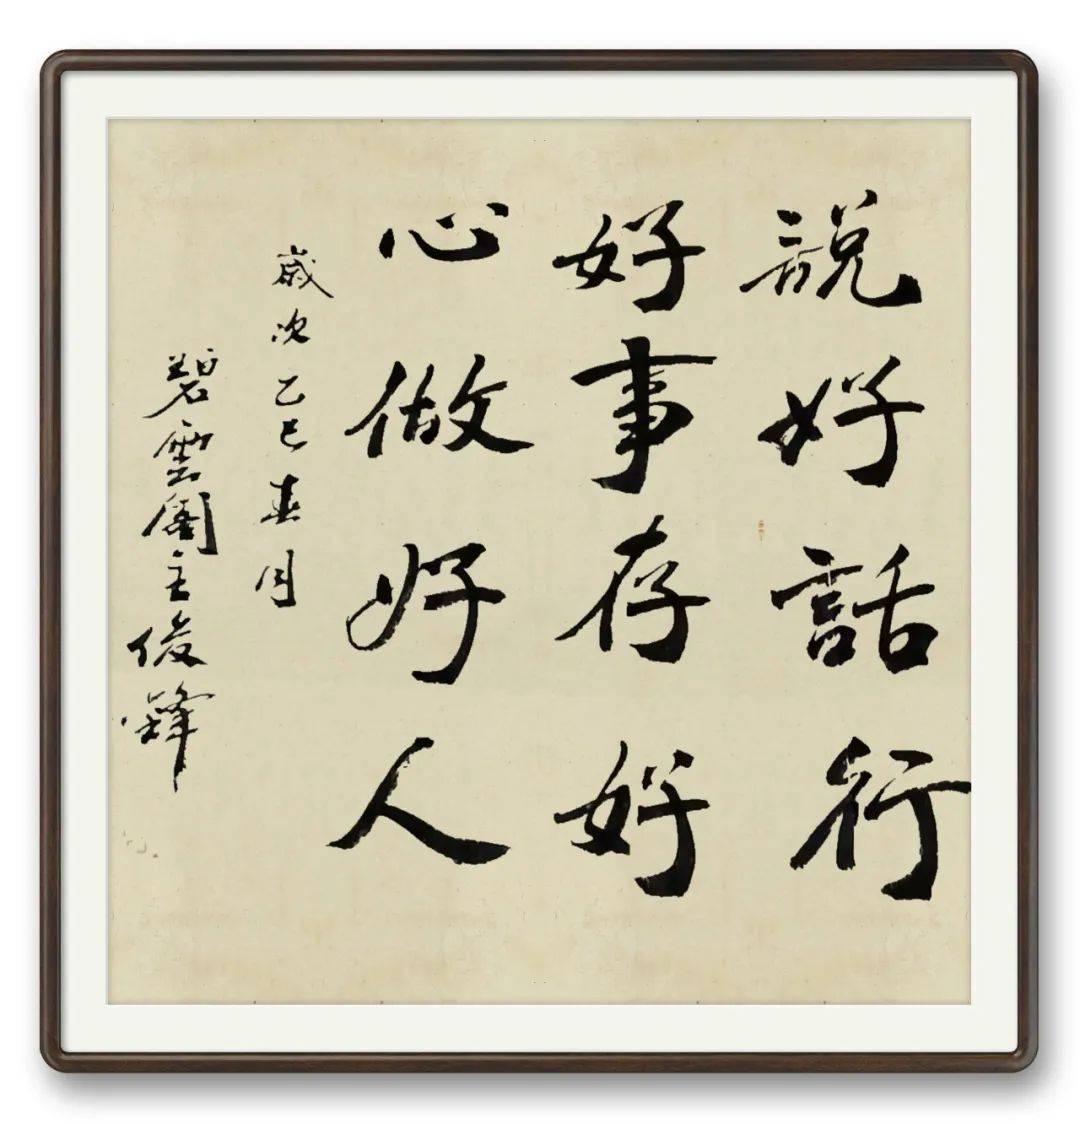 說好話行
好事存好
心做好人
歲次乙巳春月
碧雲閣主俊鋒